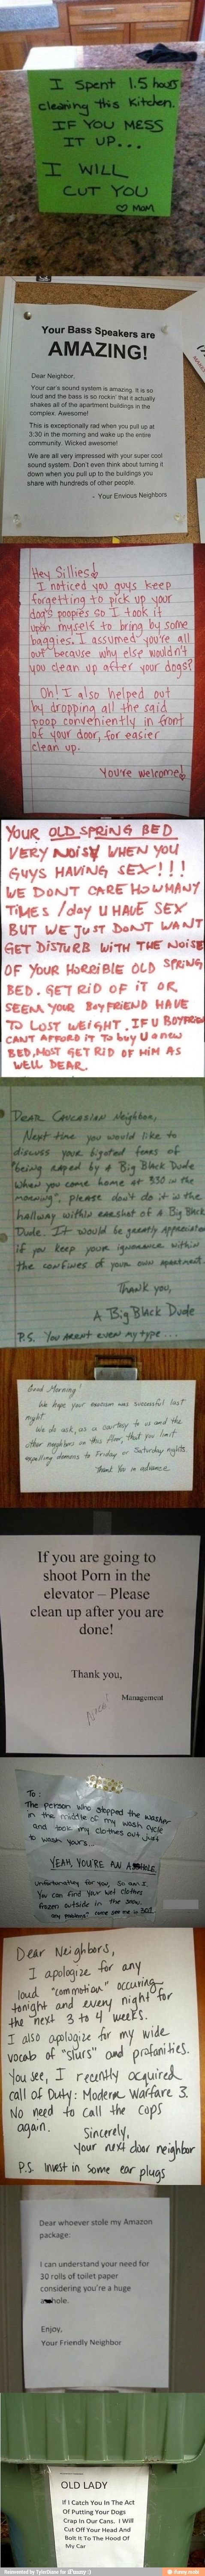 I spent 1.5 hours
cleaning this kitchen.
IF YOU MESS
IT UP...
I WILL
CUT YOU
♡ MOM
Your Bass Speakers are
AMAZING!
Dear Neighbor,
Your car's sound system is amazing. It is so
loud and the bass is so rockin' that it actually
shakes all of the apartment buildings in the
complex. Awesome!
This is exceptionally rad when you pull up at
3:30 in the morning and wake up the entire
community. Wicked awesome!
We are all very impressed with your super cool
sound system. Don't even think about turning it
down when you pull up to the buildings you
share with hundreds of other people.
- Your Envious Neighbors
Hey Sillies!
I noticed you guys keep
forgetting to pick up your
dog's poopies so I took it
upon myself to bring by some
baggies. I assumed you're all
out because why else wouldn't
you clean up after your dogs?
Oh! I also helped out
by dropping all the said
poop conveniently in front
of your door, for easier
clean up.
You're welcome!
YOUR OLD SPRING BED
VERY NOISY WHEN YOU
GUYS HAVING SEX!!!
WE DON'T CARE HOWMANY
TIMES /day U HAVE SEX
BUT WE JUST DON'T WANT
GET DISTURB WITH THE NOISE
OF YOUR HORRIBLE OLD SPRING
BED. GET RID OF IT OR
SEEM YOUR BOYFRIEND HAVE
TO LOST WEIGHT. IF U BOYFRIEN
CANT AFFORD IT TO buy U a new
BED, MOST GET RID OF HIM AS
WELL DEAR.
DEAR CAUCASIAN NEIGHBOR,
Next time you would like to
discuss your bigoted fears of
"being raped by a Big Black Dude
when you come home at 330 in the
morning", please don't do it in the
hallway within earshot of A Big Black
Dude. It would be greatly appreciated
if you keep your ignorance within
the confines of your own apartment.
Thank you,
A Big Black Dude
P.S. You aren't even my type...
Good Morning!
We hope your exorcism was successful last
night.
We do ask, as a courtesy to us and the
other neighbors on this floor, that you limit
expelling demons to Friday or Saturday nights.
Thank You in advance
If you are going to
shoot Porn in the
elevator – Please
clean up after you are
done!
Thank you,
Management
Nice!
To:
The person who stopped the washer
in the middle of my wash cycle
and took my clothes out just
to wash yours...
YEAH, YOU'RE AN A HOLE
Unfortunately for you, So am I.
You can find your wet clothes
frozen outside in the snow.
any problems? come see me in
Dear Neighbors,
I apologize for any
loud "commotion" occuring
tonight and every night for
the next 3 to 4 weeks.
I also apologize for my wide
vocab of "slurs" and profanities.
You see, I recently acquired
Call of Duty: Modern Warfare 3.
No need to call the cops
again.
Sincerely,
Your next door neighbor
P.S. Invest in some ear plugs
Dear whoever stole my Amazon
package:
I can understand your need for
30 rolls of toilet paper
considering you're a huge
a hole.
Enjoy,
Your Friendly Neighbor
OLD LADY
If I Catch You In The Act
Of Putting Your Dogs
Crap In Our Cans. I Will
Cut Off Your Head And
Bolt It To The Hood Of
My Car
Reinvented by TylerSlaate for iFunny :)
iFunny.mobi